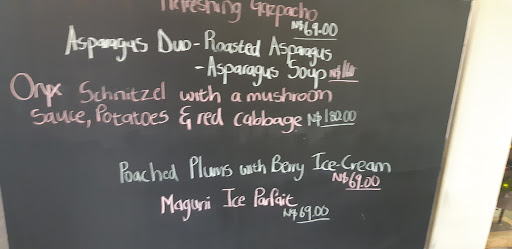 Refreshing Gazpacho
N$69.00
Asparagus Duo - Roasted Asparagus
- Asparagus Soup N$
Oryx Schnitzel with a mushroom
Sauce, Potatoes & red cabbage N$180.00
Poached Plums with Berry Ice-Cream
N$69.00
Ice Parfait
N$69.00